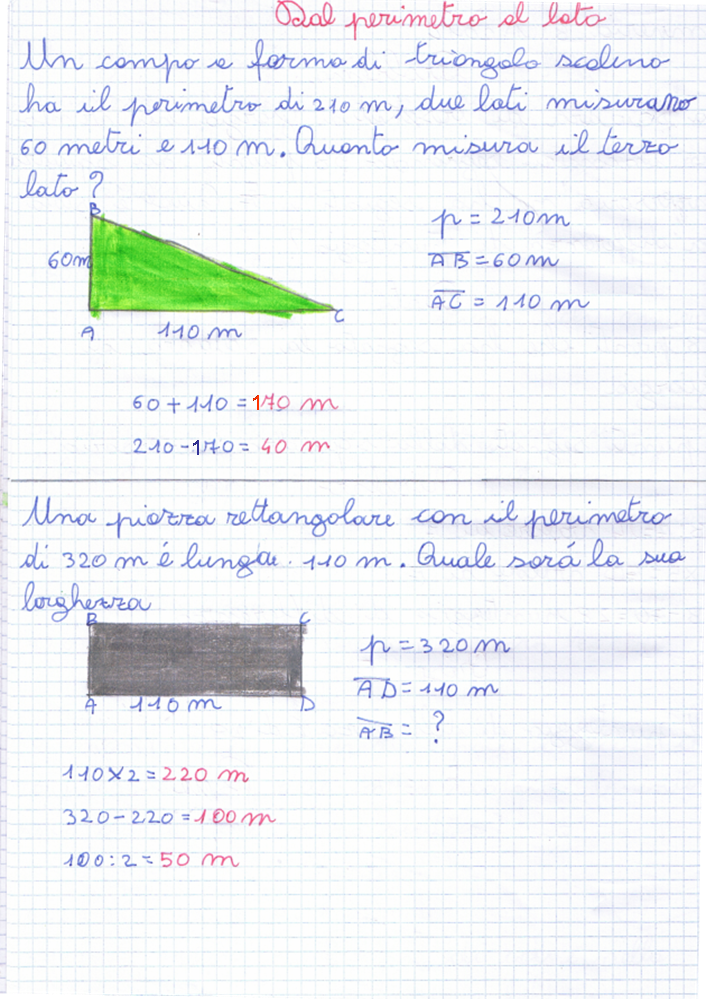 Dal perimetro al lato
Un campo a forma di triangolo scaleno
ha il perimetro di 210 m, due lati misurano
60 metri e 110 m. Quanto misura il terzo
lato?
B
60m
A
110 m
C
p = 210m
AB = 60m
AC = 110 m
60 + 110 = 170 m
210 - 170 = 40 m
Una piazza rettangolare con il perimetro
di 320 m é lunga 110 m. Quale sará la sua
larghezza
B C
A 110 m D
p = 320 m
AD = 110 m
AB = ?
110 x 2 = 220 m
320 - 220 = 100 m
100 : 2 = 50 m